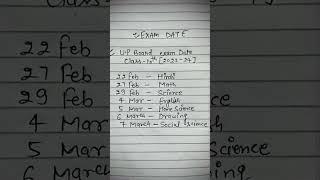 EXAM DATE
UP Board exam Date
Class-10th [2023-24]
22 feb - Hindi
27 feb - Math
29 feb - Science
4 Mar - English
5 Mar - Home Science
6 March - Drawing
7 March - Social Science
22 feb
27 feb
29 feb
4 Mar
5 Mar